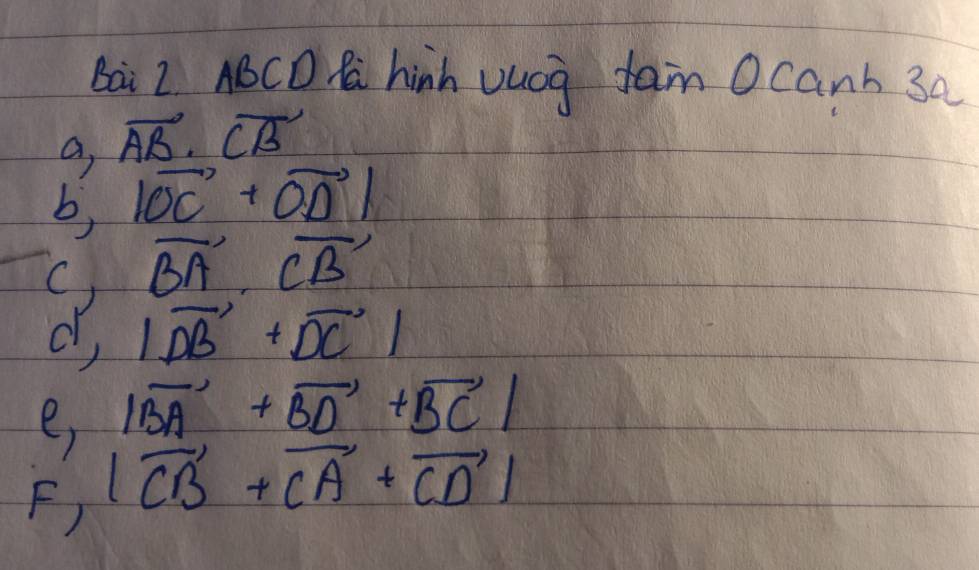 Bài 2. ABCD là hình vuog tâm O cạnh 3a
a, \overrightarrow{AB} . \overrightarrow{CB}
b, |\overrightarrow{OC} + \overrightarrow{OD}|
c, \overrightarrow{BA} . \overrightarrow{CB}
d, |\overrightarrow{DB} + \overrightarrow{DC}|
e, |\overrightarrow{BA} + \overrightarrow{BD} + \overrightarrow{BC}|
F, |\overrightarrow{CB} + \overrightarrow{CA} + \overrightarrow{CD}|